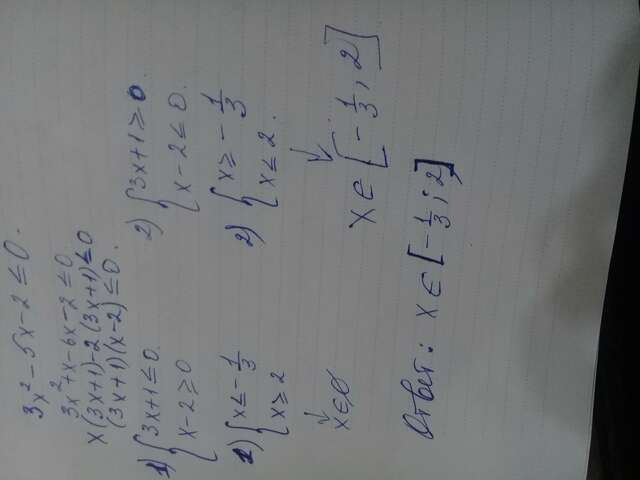 3x² - 5x - 2 ≤ 0.
3x² + x - 6x - 2 ≤ 0
x(3x+1) - 2(3x+1) ≤ 0
(3x+1)(x-2) ≤ 0.
1) { 3x+1 ≤ 0. 2) { 3x+1 ≥ 0.
x - 2 ≥ 0 x - 2 ≤ 0.
1) { x ≤ - 1/3 2) { x ≥ - 1/3
x ≥ 2 x ≤ 2.
↓ ↓
x ∈ ∅ x ∈ [- 1/3 ; 2]
Ответ: x ∈ [- 1/3 ; 2]